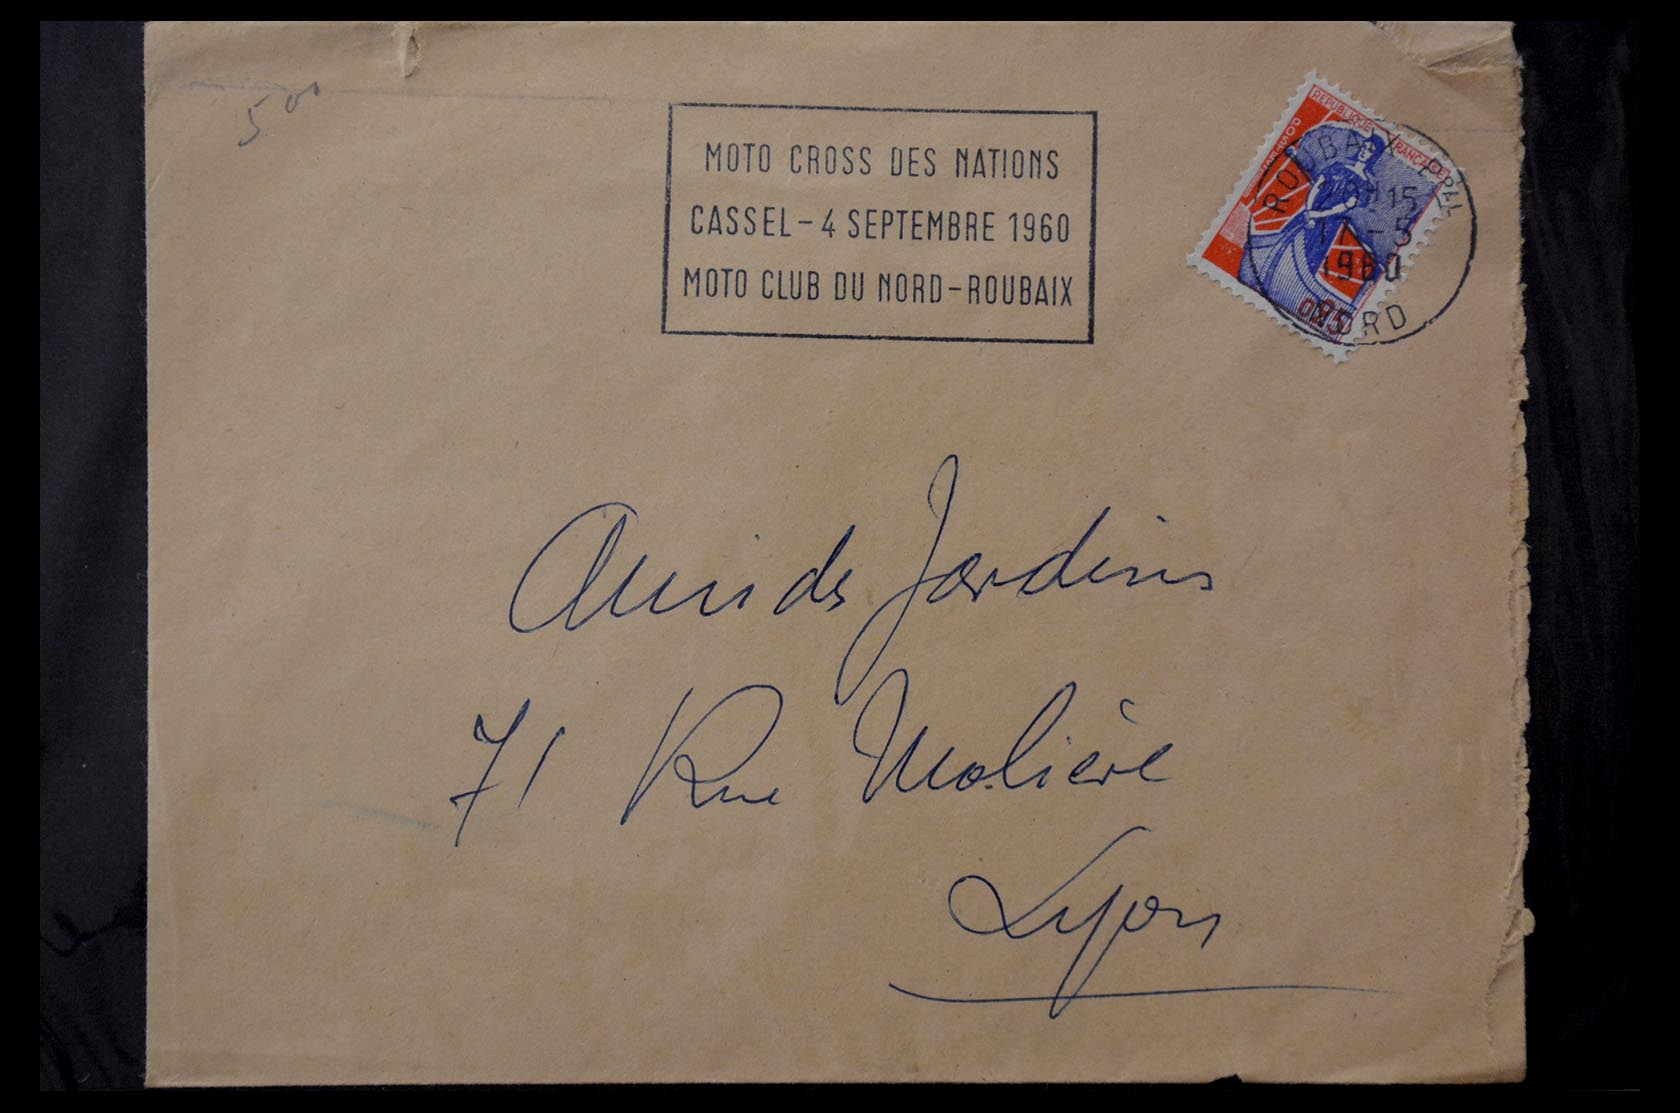 500
MOTO CROSS DES NATIONS
CASSEL - 4 SEPTEMBRE 1960
MOTO CLUB DU NORD - ROUBAIX
REPUBLIQUE FRANÇAISE
POSTES
0,25
ROUBAIX PPAL
15
-5
1960
NORD
Ami des Jardins
71 Rue Molière
Lyon